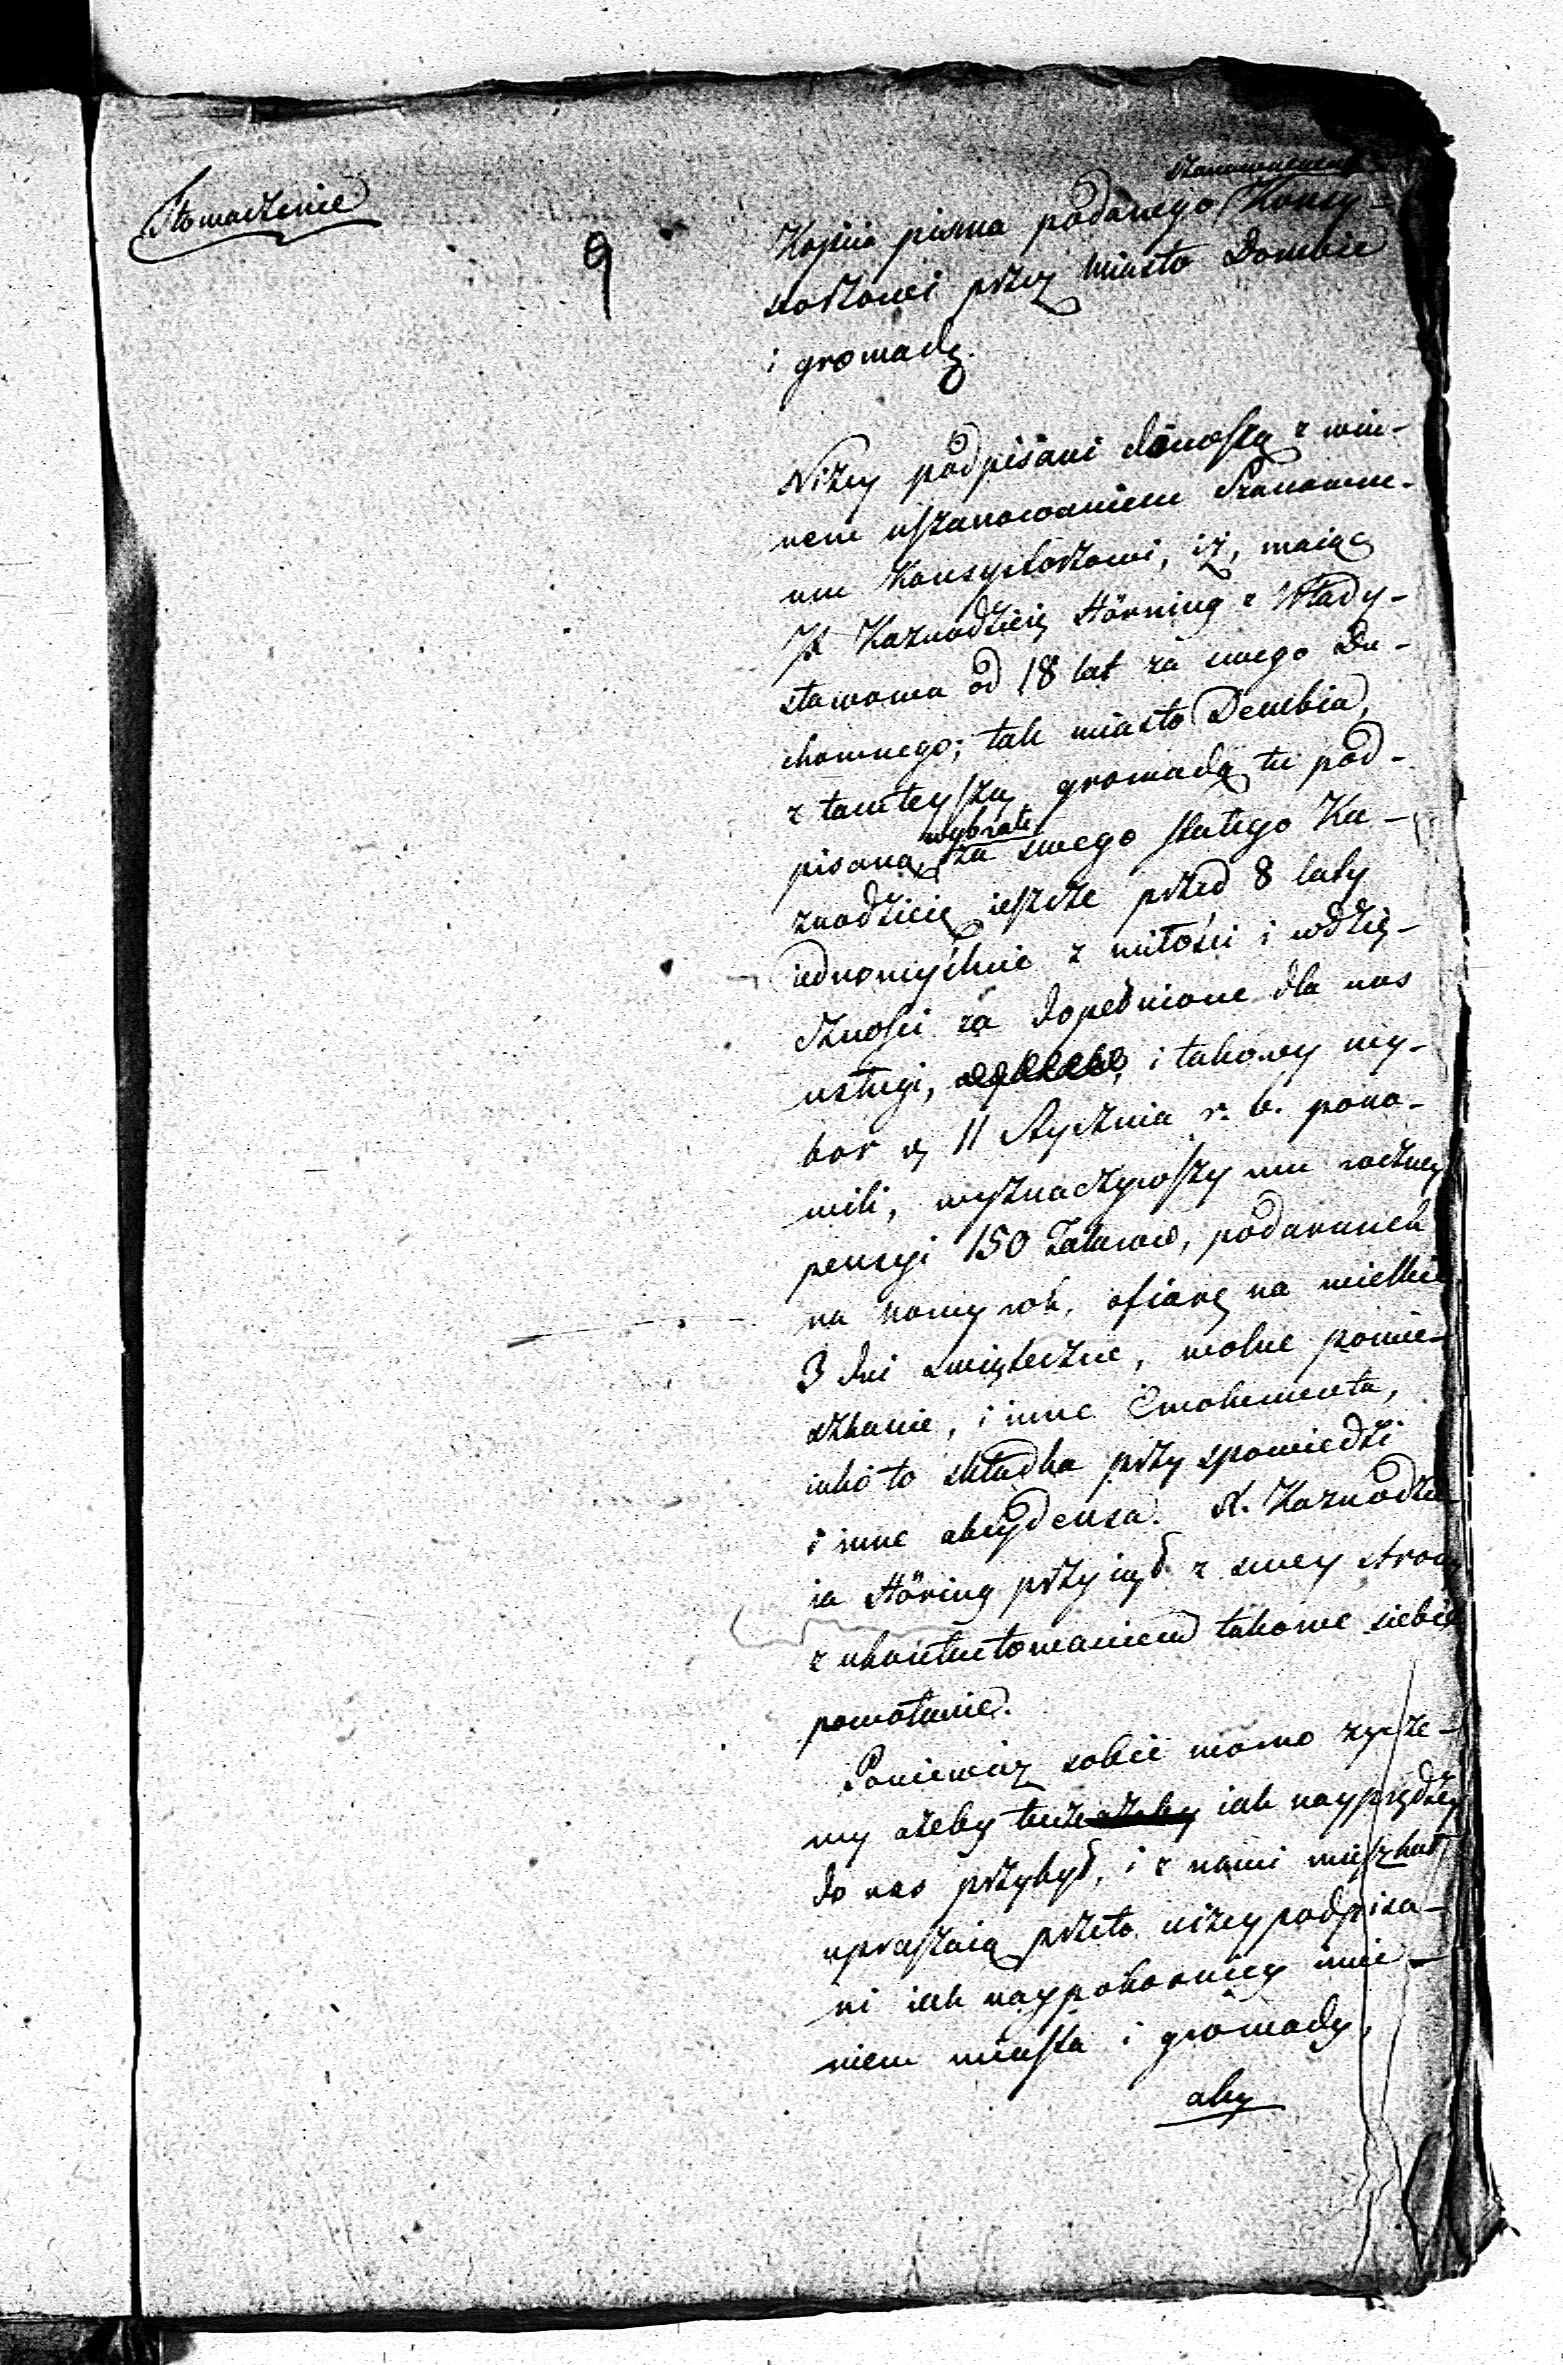 Tłomaczenie
9
szanownemu
Kopiia pisma podanego Konsy-
storzowi przez miasto Dombie
i gromadę.
Niżey podpisani donoszą z win-
nem uszanowaniem Szanowne-
mu Konsystorzowi, iż, maiąc
JX Kaznodzieię Hörning z Włady-
sławowa od 18 lat za swego Du-
chownego; tak miasto Dembia,
z tamteyszą gromadą tu pod-
wybrali
pisaną, za swego stałego Ka-
znodzieię ieszcze przed 8 laty
iednomyślnie z miłości i wdzię-
czności za dopełnione dla nas
usługi, i takowy wy-
bor z 11 Stycznia r. b. pono-
wili, wyznaczywszy mu roczney
pensyi 150 Talarow, podarunek
na nowy rok, ofiarę na wielkie
3 dni świąteczne, wolne pomie-
szkanie, i inne Emolumenta,
iako to składka przy spowiedzi
i inne akcydensa. X. Kaznodzie-
ia Höring przyiął z swey strony
z ukontentowaniem takowe siebie
powołanie.
Poniewiaż sobie mocno życze-
my ażeby tenże iak nayprędzey
do nas przybył, i z nami mieszkał,
upraszaią przeto niżey podpisa-
ni iak naypokorniey imie-
niem miasta i gromady,
aby